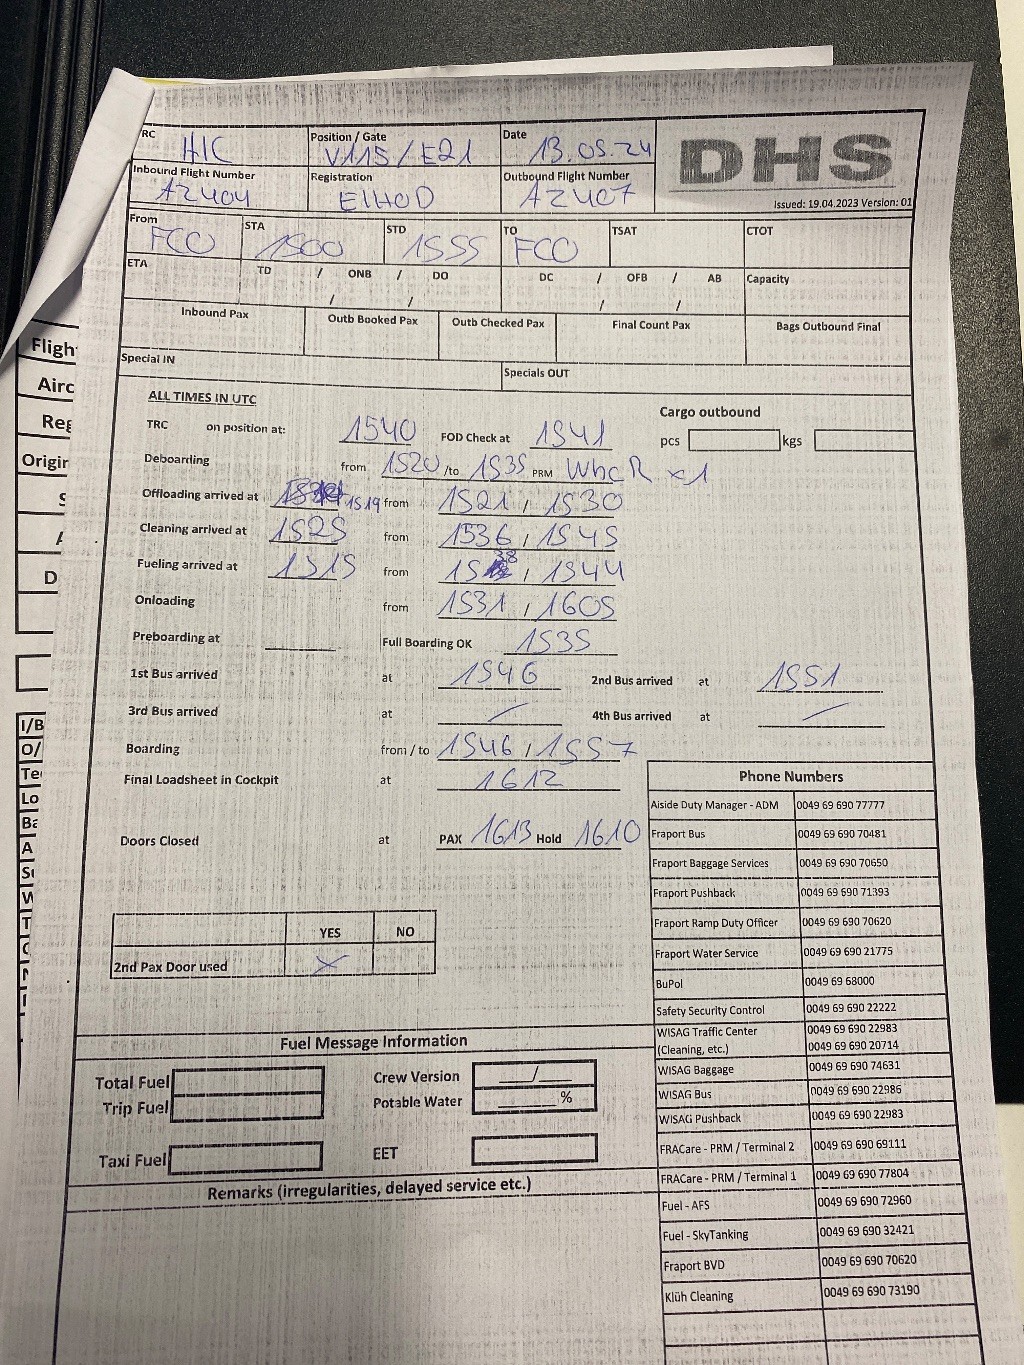 TRC HIC Position / Gate V115/E21 Date 13.05.24 DHS
Inbound Flight Number AZ404 Registration EIHOD Outbound Flight Number AZ407
Issued: 19.04.2023 Version: 01
From FCO STA 1500 STD 1555 TO FCO TSAT CTOT
ETA TD / ONB / DO DC / OFB / AB Capacity
/ / / /
Inbound Pax Outb Booked Pax Outb Checked Pax Final Count Pax Bags Outbound Final
Special IN Specials OUT
ALL TIMES IN UTC
Cargo outbound
TRC on position at: 1540 FOD Check at 1541 pcs kgs
Deboarding from 1520 /to 1535 PRM WhcR x1
Offloading arrived at 1519 from 1521 / 1530
Cleaning arrived at 1525 from 1536 / 1545
Fueling arrived at 1515 from 1538 / 1544
Onloading from 1531 / 1605
Preboarding at Full Boarding OK 1535
1st Bus arrived at 1546 2nd Bus arrived at 1551
3rd Bus arrived at / 4th Bus arrived at /
Boarding from / to 1546 / 1557
Final Loadsheet in Cockpit at 1612
Doors Closed at PAX 1613 Hold 1610
YES NO
2nd Pax Door used X
Phone Numbers
Aiside Duty Manager - ADM 0049 69 690 77777
Fraport Bus 0049 69 690 70481
Fraport Baggage Services 0049 69 690 70650
Fraport Pushback 0049 69 690 71393
Fraport Ramp Duty Officer 0049 69 690 70620
Fraport Water Service 0049 69 690 21775
BuPol 0049 69 68000
Safety Security Control 0049 69 690 22222
WISAG Traffic Center 0049 69 690 22983
(Cleaning, etc.) 0049 69 690 20714
WISAG Baggage 0049 69 690 74631
WISAG Bus 0049 69 690 22986
WISAG Pushback 0049 69 690 22983
FRACare - PRM / Terminal 2 0049 69 690 69111
FRACare - PRM / Terminal 1 0049 69 690 77804
Fuel - AFS 0049 69 690 72960
Fuel - SkyTanking 0049 69 690 32421
Fraport BVD 0049 69 690 70620
Klüh Cleaning 0049 69 690 73190
Fuel Message Information
Total Fuel Crew Version /
Trip Fuel Potable Water %
Taxi Fuel EET
Remarks (irregularities, delayed service etc.)
Fligh
Airc
Reg
Origin
S
A
D
I/B
O/
Te
Lo
Ba
A